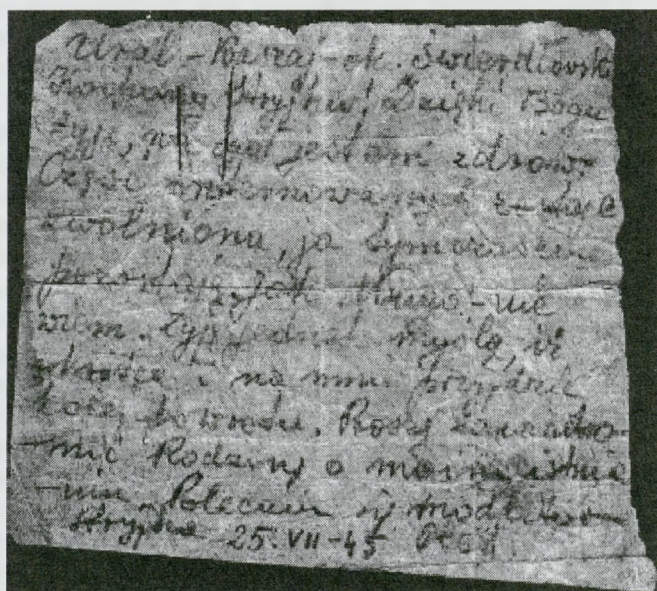 Ural - ok. Świerdłowsk
Kochany Stryjku! Dzięki Bogu
żyję, jestem zdrów.
Część internowanych
zwolniona, ja tymczasem
pozostaję, jak długo - nie
wiem. Żyję jednak myślą, iż
wkrótce i na mnie przyjdzie
kolej powrotu. Proszę zawiado-
-mić Rodzinę o moim istnie
-niu. Polecam się modlitwo
Stryjka 25.VII-45